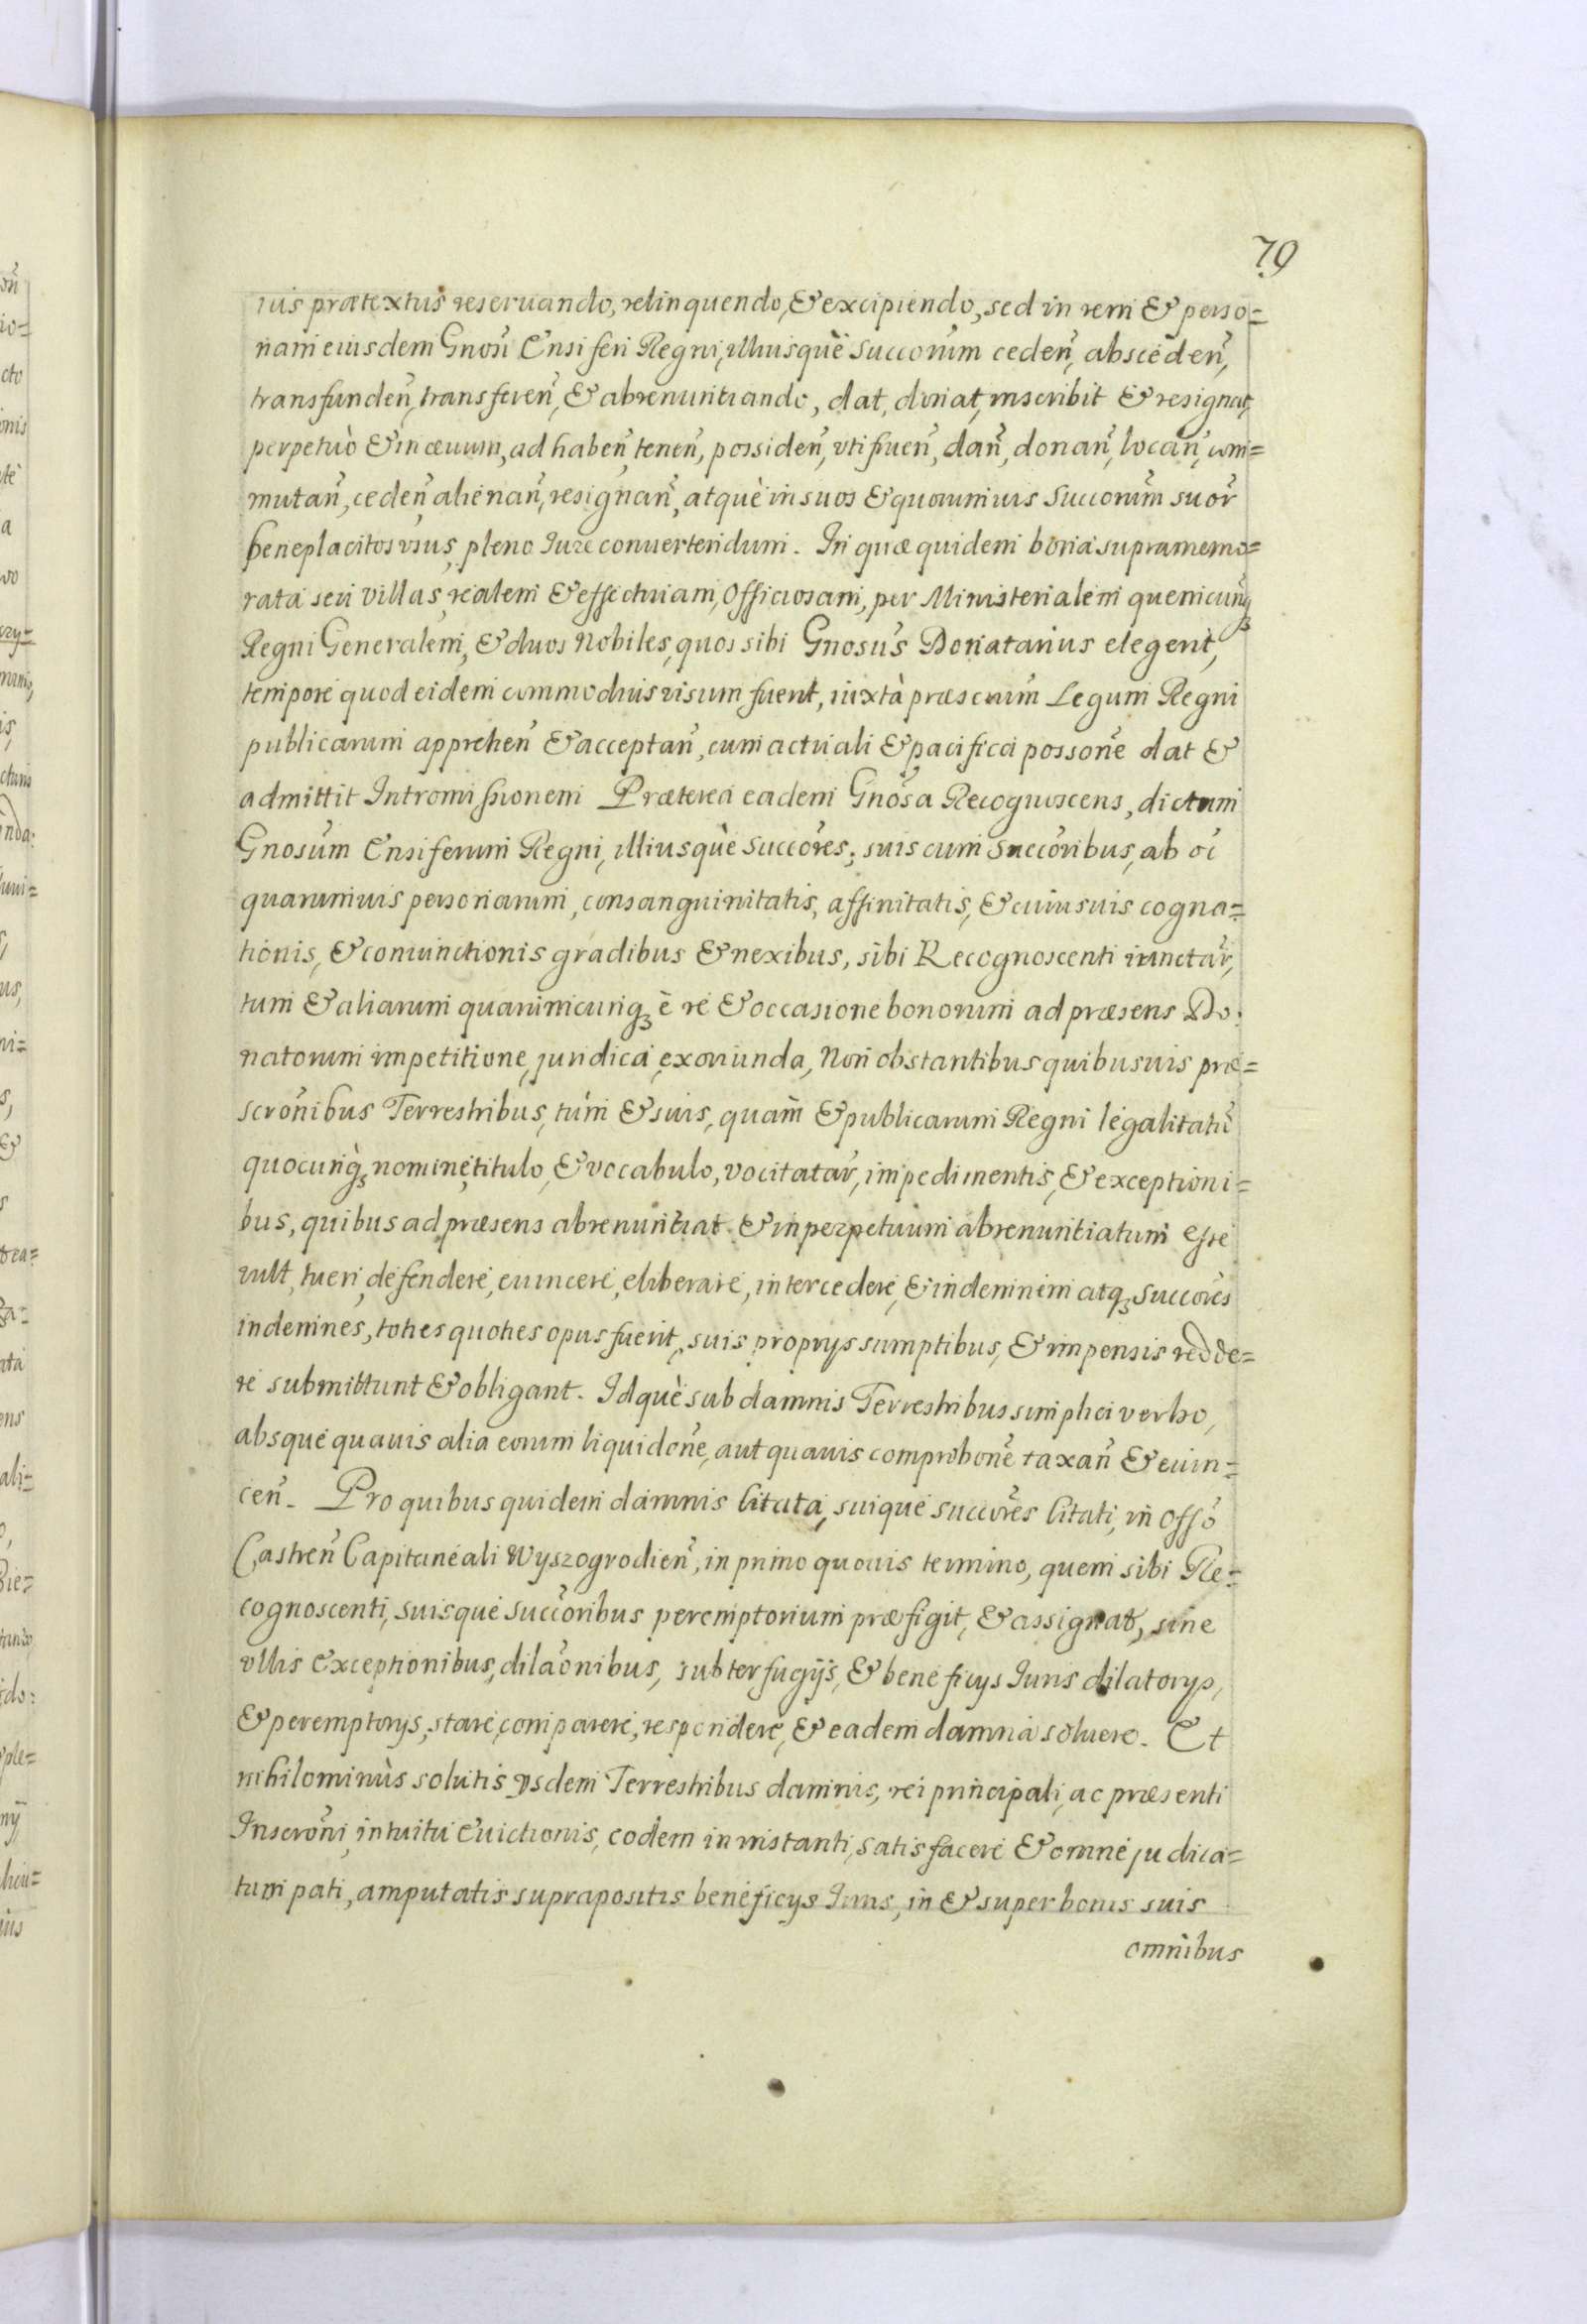 79
iuis prætextus reseruando, relinquendo, & excipiendo, sed in rem & perso=
nam eiusdem Gnosi Ensiferi Regni, illiusquè Succorum̃ ceden̄, absceden̄,
transfunden̄, transferen̄, & abrenuntiando, dat, donat, inscribit & resignat,
perpetuò & in æuum, ad haben̄, tenen̄, possiden̄, vtifruen̄, dan̄, donan̄, locan̄, com=
mutan̄, ceden̄, alienan̄, resignan̄, atquè in suos & quorumuis Succorum̃ suor̄
beneplacitos vsus, pleno Iure conuertendum. In quæ quidem bona supramemo=
rata seu villas, realem & effectiuam, Officiosam, per Ministerialem quemcunq₃
Regni Generalem, & duos Nobiles, quos sibi Gnosus̃ Donatarius elegerit,
tempore quod eidem commodius visum fuerit, iuxtà præscrum̃ Legum Regni
publicarum apprehen̄ & acceptan̄, cum actuali & pacifica posson̄e dat &
admittit Intromissionem Præterea eadem Gnõsa Recognoscens, dictum
Gnosum̃ Ensiferum Regni, illiusquè Succõres, suis cum Succõribus, ab oī
quarumuis personarum, consanguinitatis, affinitatis, & cuiusuis cogna=
tionis, & coniunctionis gradibus & nexibus, sibi Recognoscenti iunctar̄,
tum & aliarum quarumcunq₃ è re & occasione bonorum ad præsens Do:
natorum impetitione, juridica exoriunda, Non obstantibus quibusuis præ=
scrõnibus Terrestribus, tùm & suis, quàm & publicarum Regni légalitatū
quocunq₃ nomine, titulo, & vocabulo, vocitatar̄, impedimentis, & exceptioni=
bus, quibus ad præsens abrenuntiat & in perpetuum abrenuntiatum esse
vult, tueri, defendere, euincere, eliberare, intercedere, & indemnem atq₃ Succõres
indemnes, toties quoties opus fuerit, suis proprys sumptibus, & impensis redde=
re submittunt & obligant. Idquè sub damnis Terrestribus simplici verbo,
absque quauis alia eorum liquidõne, aut quauis comprobõne taxan̄ & euin=
cen̄. Pro quibus quidem damnis litata, suique succõres litati, in Offõ
Castren̄ Capitaneali Wyszogrodien̄, in primo quouis termino, quem sibi Re=
cognoscenti, suisque succõribus peremptorium præfigit, & assignat, sine
vllis exceptionibus, dilaõnibus, subterfugijs, & beneficys Iuris dilatorys,
& peremptorys, stare, comparere, respondere, & eadem damna soluere. Et
nihilominùs solutis ysdem Terrestribus damnis, rei principali, ac præsenti
Inscrõni, intuitu Euictionis, eodem in instanti, satisfacere & omne judica=
tum pati, amputatis suprapositis beneficys Iuris, in & super bonis suis
omnibus